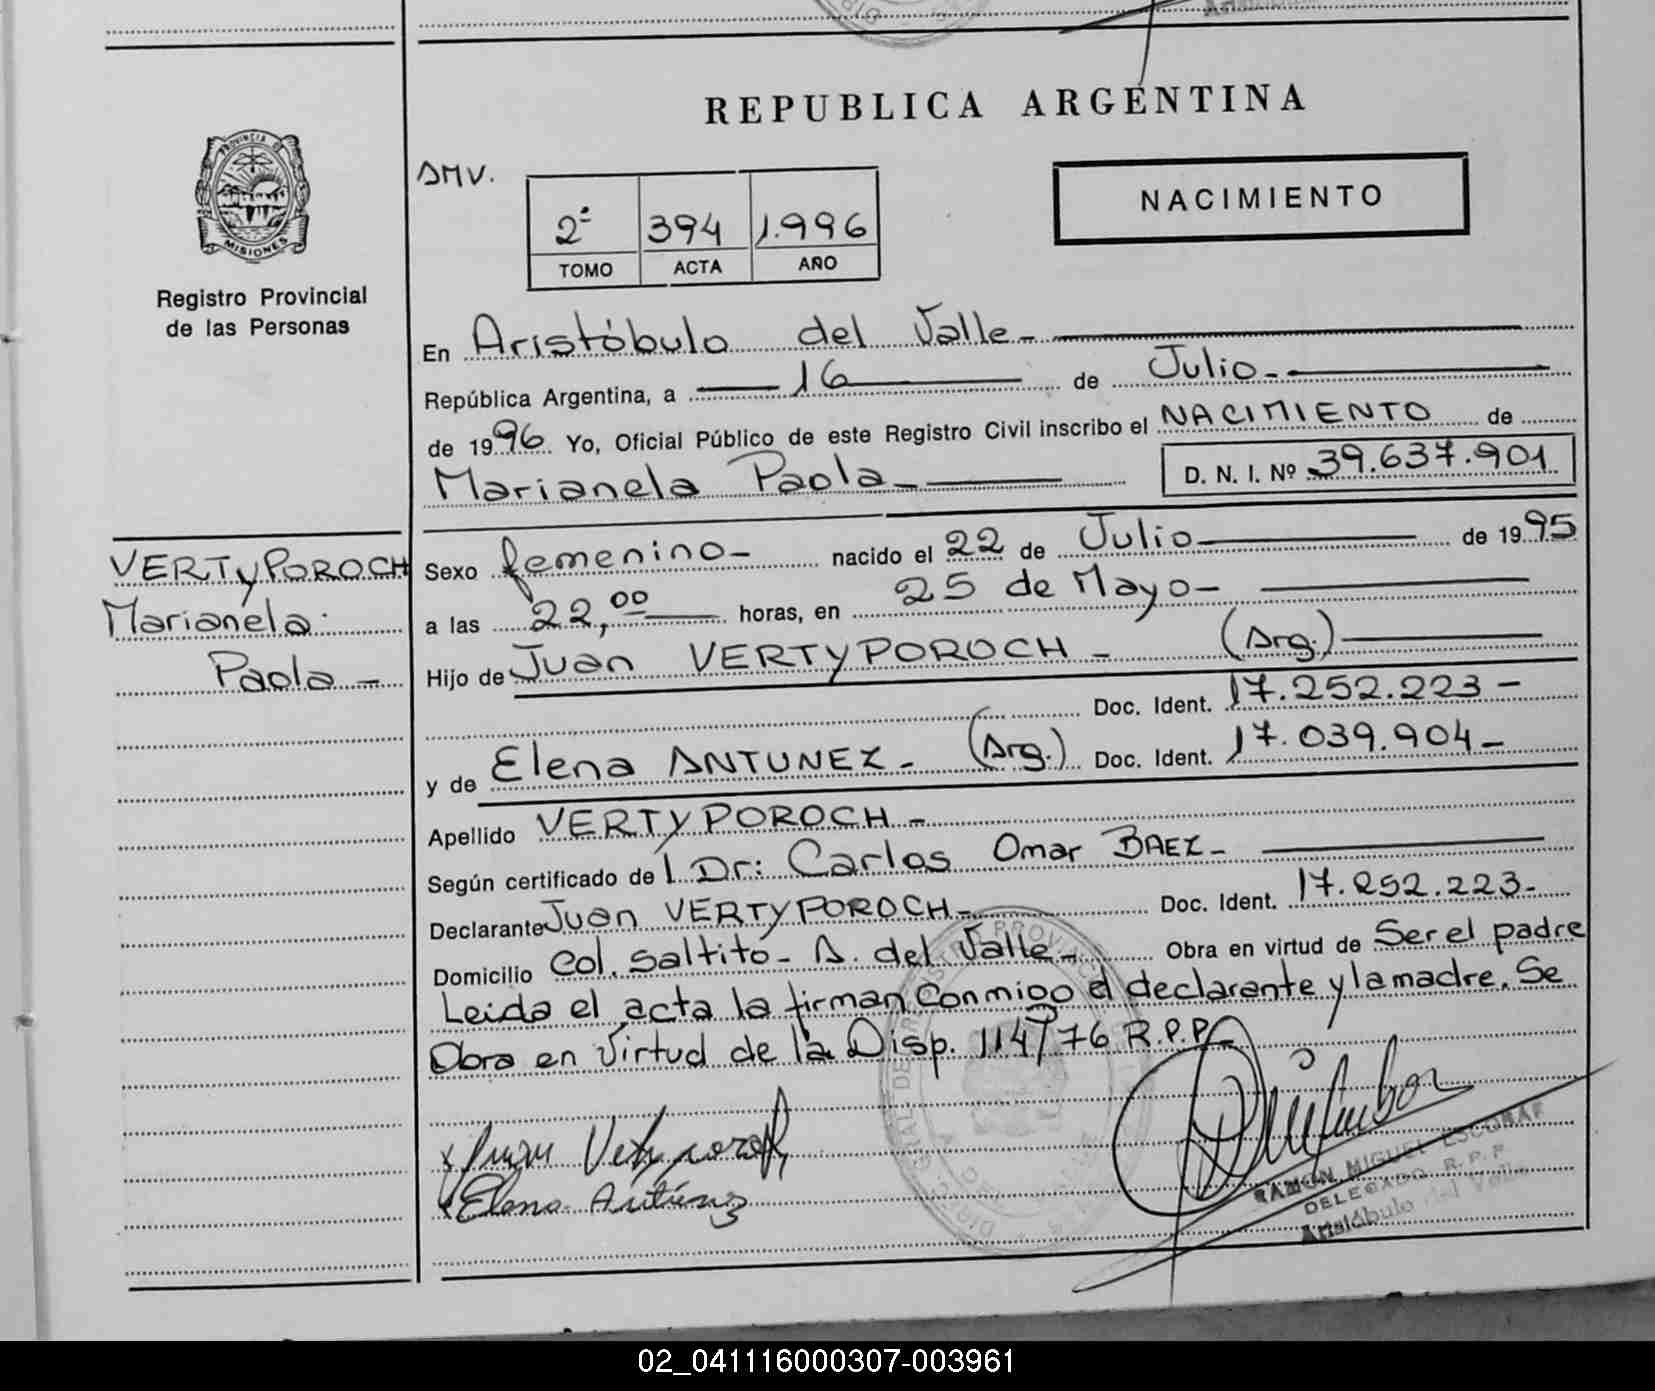 REPUBLICA ARGENTINA
PROVINCIA DE
MISIONES
Registro Provincial
de las Personas
AMV.
2º 394 1.996
TOMO ACTA AÑO
NACIMIENTO
En Aristóbulo del Valle-
República Argentina, a 16 de Julio-
de 1996 Yo, Oficial Público de este Registro Civil inscribo el NACIMIENTO de
Marianela Paola- D. N. I. Nº 39.637.901
VERTYPOROCH
Marianela
Paola-
Sexo femenino- nacido el 22 de Julio de 1995
a las 22,00 horas, en 25 de Mayo-
Hijo de Juan VERTYPOROCH- (Arg.)
Doc. Ident. 17.252.223-
y de Elena ANTUNEZ- (Arg.) Doc. Ident. 17.039.904-
Apellido VERTYPOROCH-
Según certificado de l Dr: Carlos Omar BAEZ-
Declarante Juan VERTYPOROCH- Doc. Ident. 17.252.223-
Domicilio Col. Saltito- A. del Valle- Obra en virtud de Ser el padre
Leida el acta la firman conmigo el declarante y la madre. Se
Obra en Virtud de la Disp. 114/76 R.P.P.
Juan
Elena Antúnez
RAMON MIGUEL ESCOBAR
DELEGADO R. P. P.
Aristóbulo del Valle
02_041116000307-003961